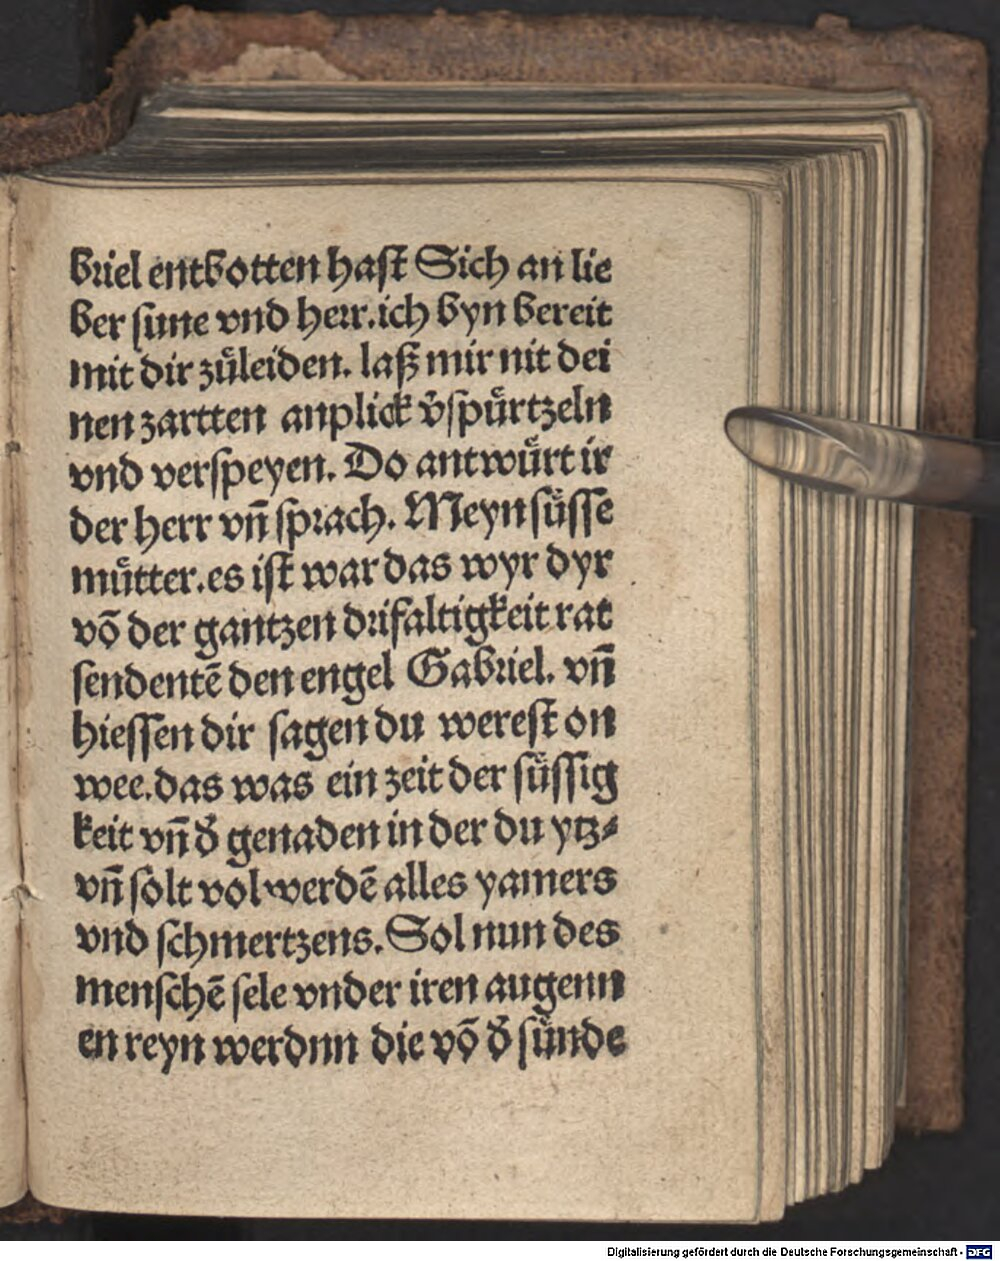 briel entbotten hast Sich an lie
ber sune vnd herr.ich byn bereit
mit dir zuͤleiden. laß mir nit dei
nen zartten anplick v̉spuͤrtzeln
vnd verspeyen. Do antwuͤrt ir
der herr vñ sprach. Meyn suͤsse
muͤtter.es ist war das wyr dyr
võ der gantzen drifaltigkeit rat
sendentẽ den engel Gabriel. vñ
hiessen dir sagen du werest on
wee.das was ein zeit der suͤssig
keit vñ d̉ genaden in der du ytz⸗
vñ solt vol werdẽ alles yamers
vnd schmertzens. Sol nun des
menschẽ sele vnder iren augenn
en reyn werdnn die võ d̉ suͤnde
Digitalisierung gefördert durch die Deutsche Forschungsgemeinschaft - DFG